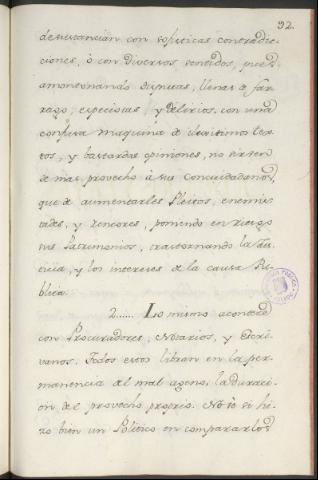 92.
desustancian con sofisticas contradic-
ciones, ò con diversos sentidos, pues
amontonando disputas, llenas de far-
rago, especiotas, y delirios, con una
confusa maquina de ilexitimos tex-
tos, y bastardas opiniones, no sirven
de mas provecho à sus Conciudadanos,
que de aumentarles Pleitos, enemis-
tades, y rencores, poniendo en riesgo
sus Patrimonios, trastornando la
y los intereses de la causa Pu-
blica.
2...... Lo mismo acontece
con Procuradores, Notarios, y Escri-
vanos. Todos estos libran en la per-
manencia del mal ageno, la duraci-
on del provecho proprio. No se si hi-
zo bien un Politico en compararlos